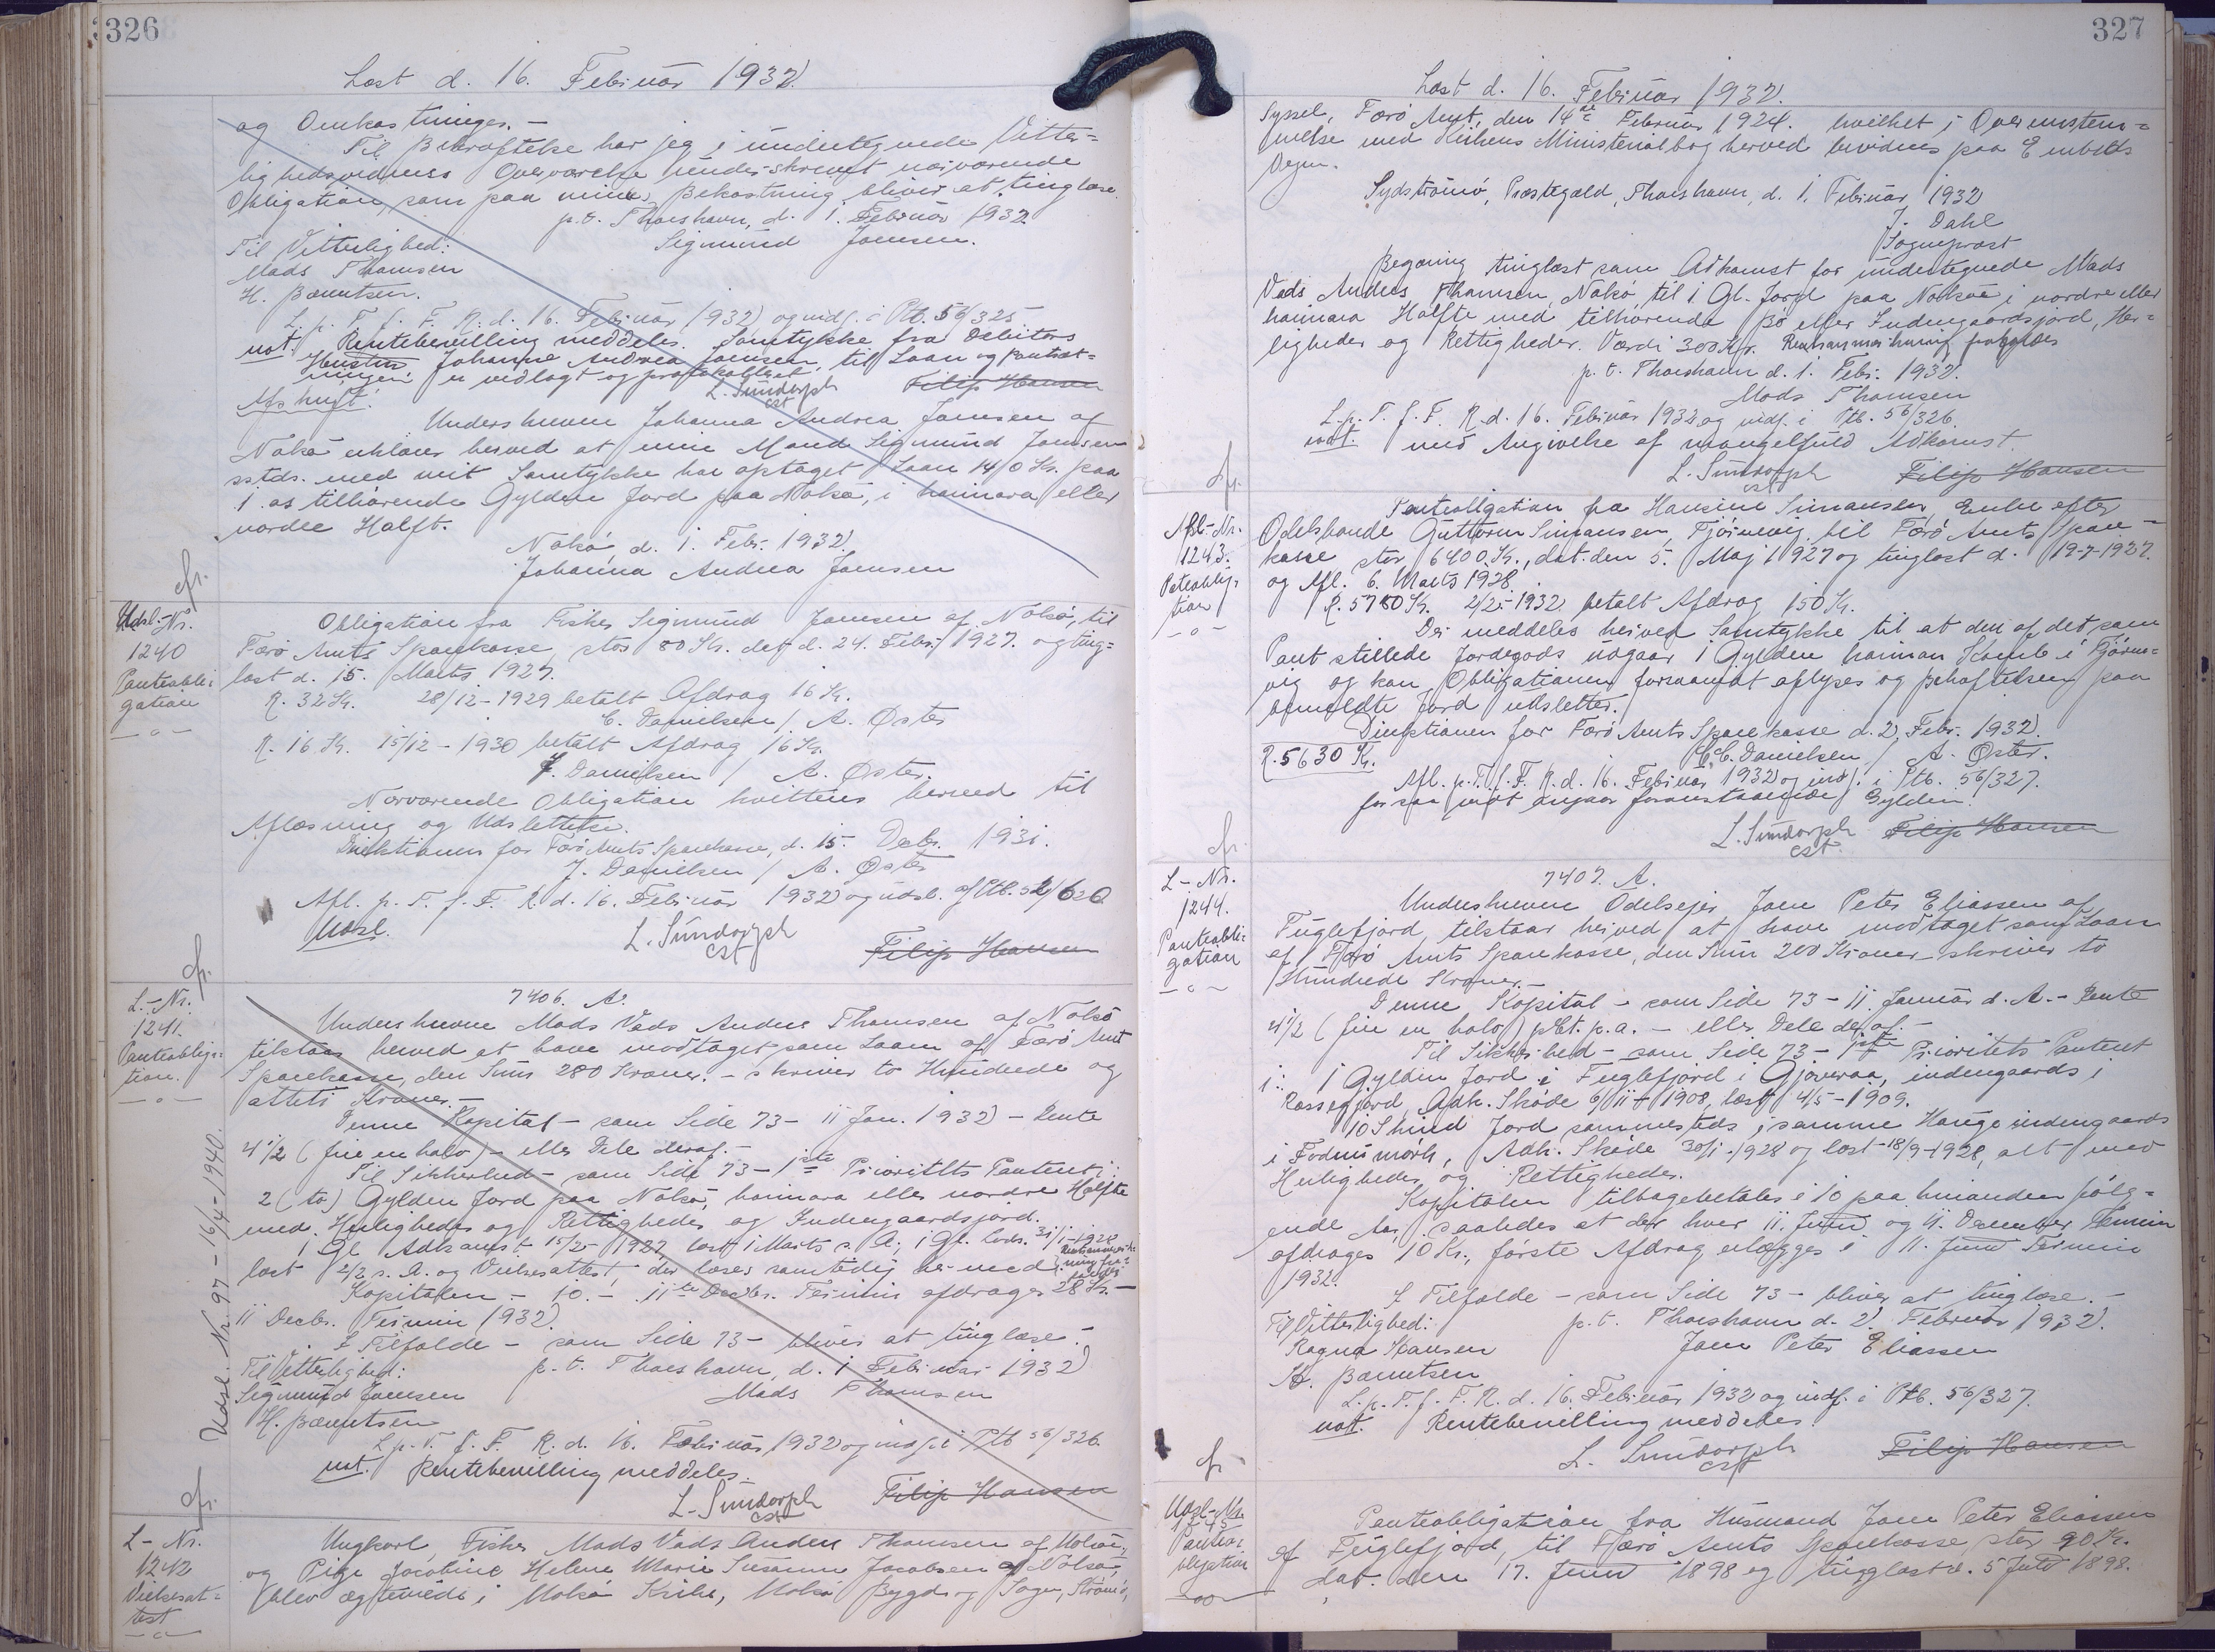 326
Læst d. 16. Februar 1932.
og Omkostninger. -
Til Bekræftelse har jeg i undertegnede Vitter=
lighedsvidners Overværelse underskrevet nærværende
Obligation, som paa min Bekostning bliver at tinglæse.
p.t. Thorshavn, d. 1. Februar 1932.
Til Vitterlighed: Sigmund Joensen.
Mads Thomsen
H. Bærentsen.
L. p. T. f. F. R. d. 16. Februar 1932 og indf. i Ptb. 56/325
not. Rentebevilling meddeles. Samtykke fra Debitors
Hustru Johanne Andrea Joensen, til Laan og Pantsæt=
ningen er vedlagt og protokolleret.
L. Sundorph Filip Hansen
cst
Afskrift.
Underskreven Johanna Andrea Joensen af
Nolsø erklærer herved at min Mand Sigmund Joensen
sstds. med mit Samtykke har optaget Laan 140 Kr. paa
1 os tilhørende Gylden Jord paa Nolsø, i hannara eller
nordre Halft.
Nolsø, d. 1. Febr. 1932.
Johanna Andrea Joensen
cfr.
Udsl.-Nr.
1240
Panteobli=
gation
-o-
Obligation fra Fisker Sigmund Joensen af Nolsø, til
Færø Amts Sparekasse, stor 80 Kr. dat d. 24. Febr. 1927. og ting=
læst d. 15. Marts 1927.
R. 32 Kr. 28/12-1929 betalt Afdrag 16 Kr.
C. Danielsen / A. Øster
R. 16 Kr. 15/12-1930 betalt Afdrag 16 Kr.
J. Danielsen / A. Øster.
Nærværende Obligation kvitteres herved til
Aflæsning og Udslettelse.
Direktionen for Færø Amts Sparekasse, d. 15. Decbr. 1931.
J. Danielsen / A. Øster
Afl. p. T. f. F. R. d. 16. Februar 1932 og udsl. af Ptb. 52/620
Udsl. L. Sundorph
cst Filip Hansen
cfr.
L-Nr.
1241.
Panteobliga=
tion.
-o-
Udsl. Nr. 97 - 16/4-1940.
7406. A.
Underskrevne Mads Vads Anders Thomsen af Nolsø
tilstaar herved at have modtaget som Laan af Færø Amts
Sparekasse, den Sum 280 Kroner. - skriver to Hundrede og
otteti Kroner. -
Denne Kapital - som Side 73 - 11 Jan. 1932 - Rente
4 1/2 (fire en halv) - eller Dele deraf. -
Til Sikkerhed - som Side 73 - 1ste Prioritets Panteret i
2 (to) Gylden Jord paa Nolsø, hannara eller nordre Halfte
med Herligheder og Rettigheder og Indengaardsjord.
1 Gl. Adkomst 15/2 1927, læst 1 Marts s. A., 1 Gl. 31/1-1928
læst 2/2 s. A. og Vielsesattest, der læses samtidig hermed.
Kapitalen - 10. - 11te Decbr. Termin afdrages 28 Kr. -
11 Decbr. Termin 1932.
I Tilfælde - som Side 73 - bliver at tinglæse. -
Til Vitterlighed: p.t. Thorshavn, d. 1 Februar 1932
Sigmund Joensen Mads Thomsen
H. Bærentsen
L. p. T. f. F. R. d. 16. Februar 1932 og indf. i Ptb 56/326.
not. Rentebevilling meddeles.
L. Sundorph Filip Hansen
cst
cfr.
L-Nr.
1242
Vielsesat=
test
-o-
Ungkarl, Fisker Mads Vads Anders Thomsen af Nolsø,
og Pige Jacobine Helene Marie Susanne Jacobsen af Nolsø,
blev ægteviede i Nolsø Kirke, Nolsø Bygd og Sogn, Strømø,
327
Læst d. 16. Februar 1932.
Syssel, Færø Amt, den 14de Februar 1924. hvilket i Overensstem=
melse med Kirkens Ministerialbog herved bevidnes paa Embeds
Vegne.
Sydstrømø, Præstegæld, Thorshavn, d. 1. Februar, 1932
J. Dahl
Sognepræst
Begæring tinglæst som Adkomst for undertegnede Mads
Vads Anders Thomsen, Nolsø, til 1 Gl. Jord paa Nolsø i nordre eller
hannara Halfte med tilhørende Bø eller Indengaardsjord, Her=
ligheder og Rettigheder. Værdi 300 Kr.
p.t. Thorshavn d. 1. Febr. 1932.
Mads Thomsen
L. p. T. f. F. R. d. 16. Februar 1932 og indf. i Ptb. 56/326.
not. med Angivelse af mangelfuld Adkomst.
L. Sundorph Filip Hansen
cst
cfr.
Afl.-Nr.
1243.
Panteobliga=
tion
-o-
Panteobligation fra Hansine Simonsen, Enke efter
Odelsbonde Guttorm Simonsen, Fjørnevig til Færø Amts Spare=
kasse stor 6400 Kr., dat. den 5. Maj 1927 og tinglæst d. 19-7-1927.
og Afl. 6. Marts 1928.
R. 5780 Kr. 2/2-1932 betalt Afdrag 150 Kr.
Der meddeles herved Samtykke til at den af det som
Pant stillede Jordegods udgaar 1 Gylden hannan Kamb i Fjørne=
vig og kan Obligationen forsaavidt aflyses og Behæftelsen paa
bemeldte Jord udslettes.
Direktionen for Færø Amts Sparekasse d. 2. Febr. 1932.
R. 5630 Kr. C. C. Danielsen / A. Øster.
Afl. p. T. f. F. R. d. 16. Februar 1932 og indf. i Ptb. 56/327.
for saa vidt angaar foranstaaende Gylden.
L. Sundorph Filip Hansen
cst.
cfr.
L-Nr.
1244.
Panteobli=
gation
-o-
7407. A.
Underskrevne Odelsejer Joen Peter Eliassen af
Fuglefjord, tilstaar herved at have modtaget som Laan
af Færø Amts Sparekasse, den Sum 200 Kroner - skriver to
Hundrede Kroner. -
Denne Kapital - som Side 73 - 11 Januar d. A. - Rente
4 1/2 (fire en halv) pCt. p.a. - eller Dele deraf. -
Til Sikkerhed - som Side 73 - 1ste Prioritets Panteret
i: 1 Gylden Jord i Fuglefjord i Gjoveraa, indengaards i
Adk. Skøde 6/11 1908, læst 4/5-1909.
10 Skind Jord sammesteds, i samme Hauge indengaards
i Adk. Skøde 30/1-1928 og læst 18/9-1928, alt med
Herligheder og Rettigheder.
Kapitalen tilbagebetales i 10 paa hinanden følg=
ende Aar, saaledes at der hver 11. Juni og 11. December Termin
afdrages 10 Kr., første Afdrag erlægges i 11. Juni Termin
1932.
I Tilfælde - som Side 73 - bliver at tinglæse. -
Til Vitterlighed: p.t. Thorshavn d. 2. Februar 1932.
Ragna Hansen Joen Peter Eliassen
H. Bærentsen
L. p. T. f. F. R. d. 16. Februar 1932 og indf. i Ptb. 56/327.
not. Rentebevilling meddeles.
L. Sundorph Filip Hansen
cst
cfr.
Udsl.-Nr.
1245
Pante=
obligation
-oo-
Panteobligation fra Husmand Joen Peter Eliassen
af Fuglefjord, til Færø Amts Sparekasse stor 90 Kr.
dat. den 17. Juni 1898 og tinglæst d. 5 Juli 1898.